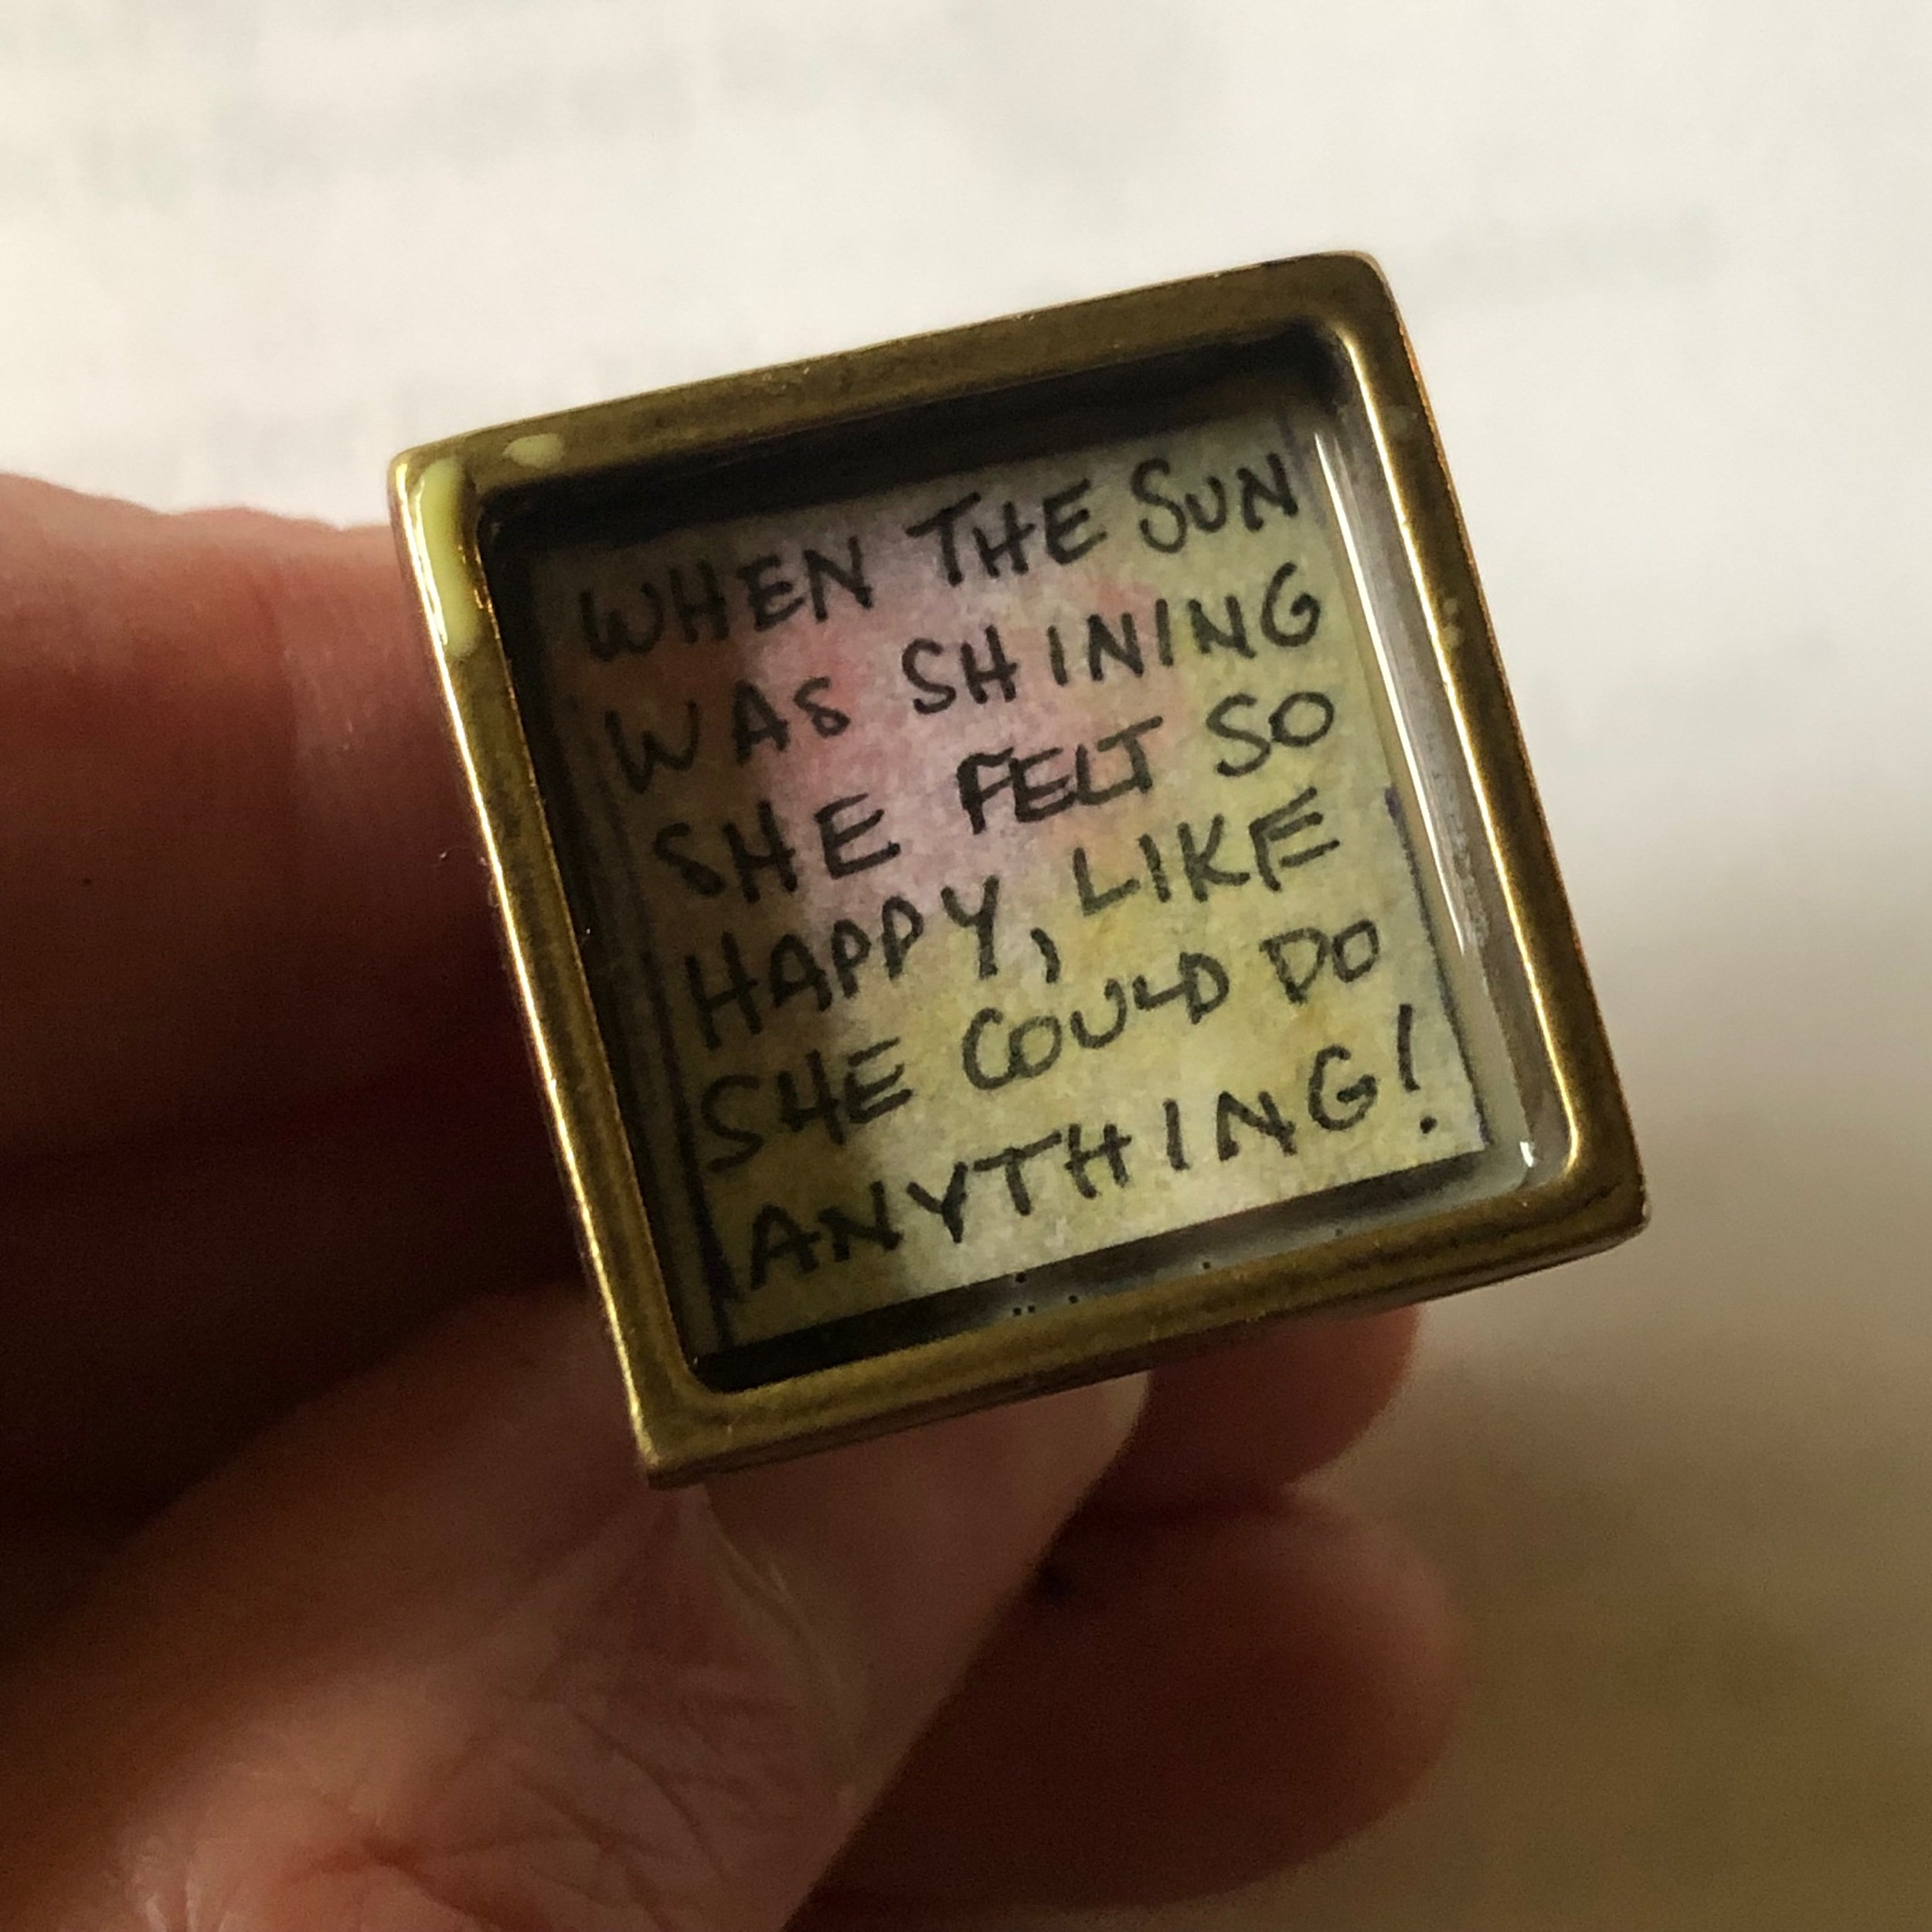 WHEN THE SUN
WAS SHINING
SHE FELT SO
HAPPY, LIKE
SHE COULD DO
ANYTHING!